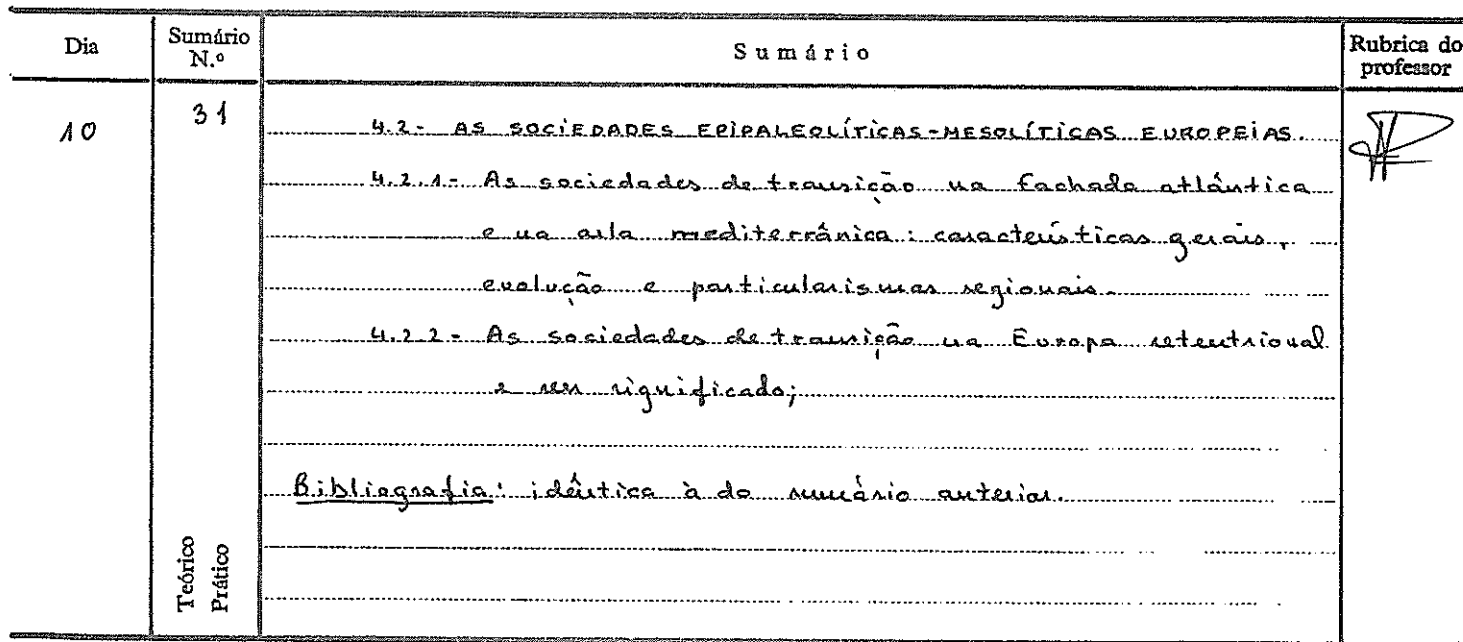 Dia
Sumário N.º
Sumário
Rubrica do professor
10
31
4.2- AS SOCIEDADES EPIPALEOLÍTICAS-MESOLÍTICAS EUROPEIAS.
4.2.1- As sociedades de transição na fachada atlântica
e na orla mediterrânica: características gerais,
evolução e particularismos regionais.
4.2.2- As sociedades de transição na Europa setentrional
e seu significado;
Bibliografia: idêntica à do sumário anterior.
Teórico
Prático